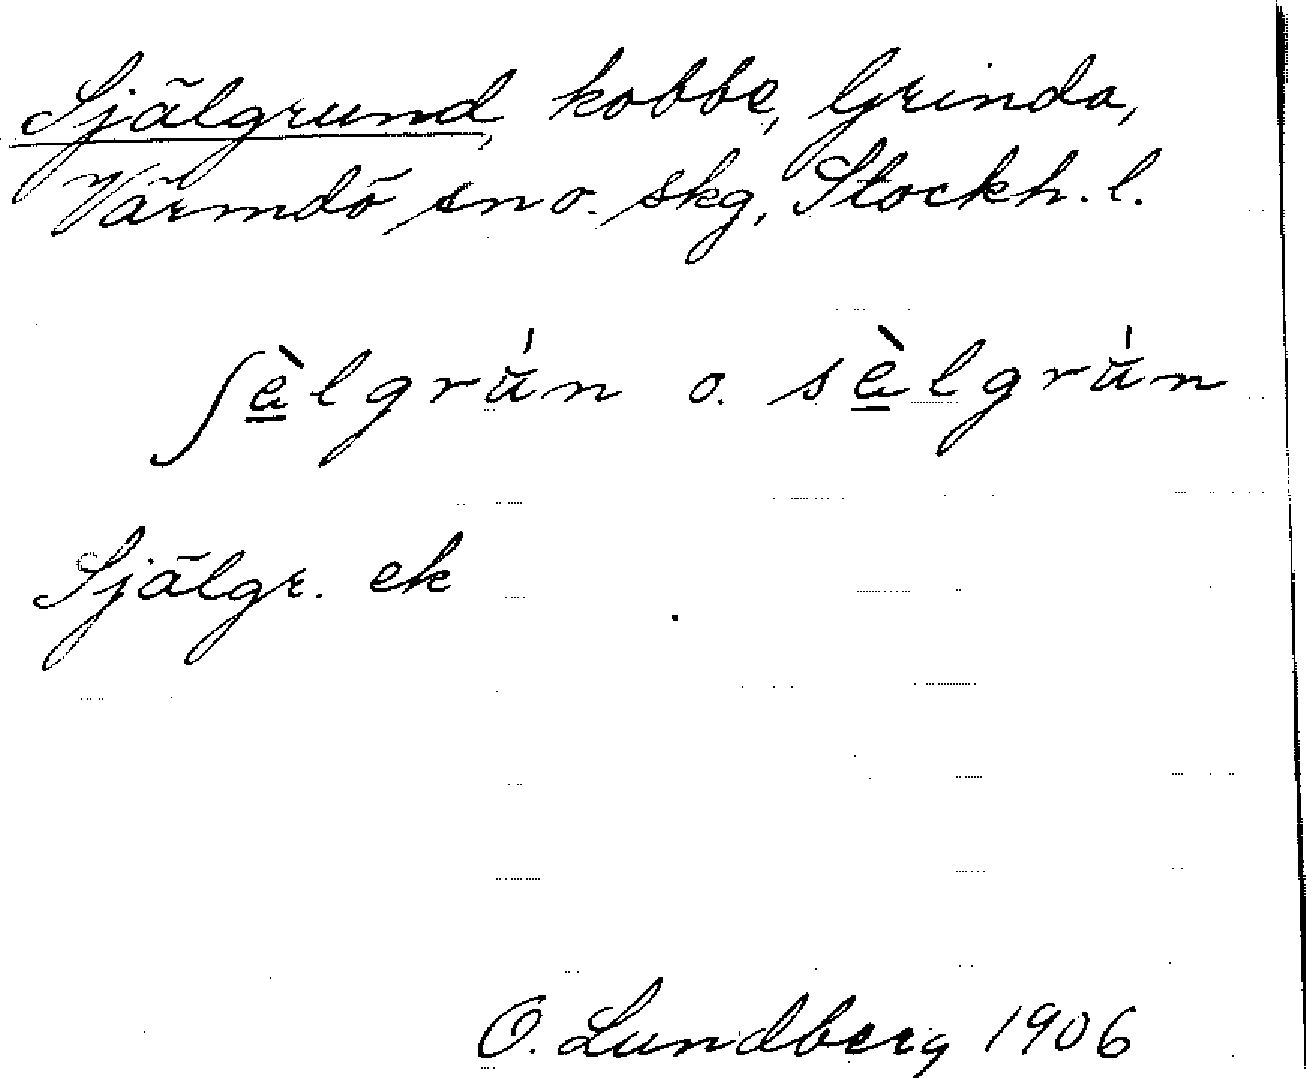 Själgrund, kobbe, Grinda,
Värmdö sn o. skg, Stockh. l.
ʃèlgrún o. sèlgrún
Själgr. ek
O. Lundberg 1906